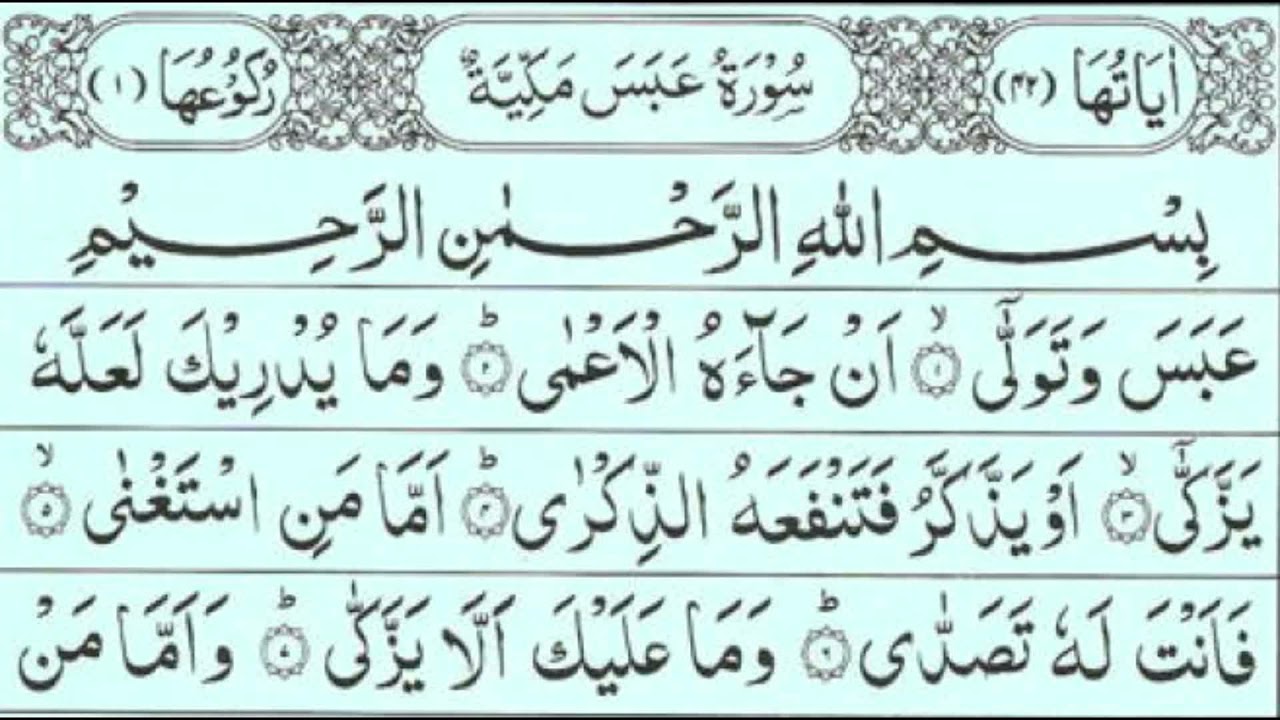 اٰيَاتُهَا (۴۲) سُوْرَةُ عَبَسَ مَكِّيَّةٌ رُكُوْعُهَا (۱)
بِسْمِ اللّٰهِ الرَّحْمٰنِ الرَّحِيْمِ
عَبَسَ وَتَوَلّٰٓى ۙ﴿۱﴾ اَنْ جَآءَهُ الْاَعْمٰى ؕ﴿۲﴾ وَمَا يُدْرِيْكَ لَعَلَّهٗ
يَزَّكّٰٓى ۙ﴿۳﴾ اَوْ يَذَّكَّرُ فَتَنْفَعَهُ الذِّكْرٰى ؕ﴿۴﴾ اَمَّا مَنِ اسْتَغْنٰى ۙ﴿۵﴾
فَاَنْتَ لَهٗ تَصَدّٰى ؕ﴿۶﴾ وَمَا عَلَيْكَ اَلَّا يَزَّكّٰى ؕ﴿۷﴾ وَاَمَّا مَنْ